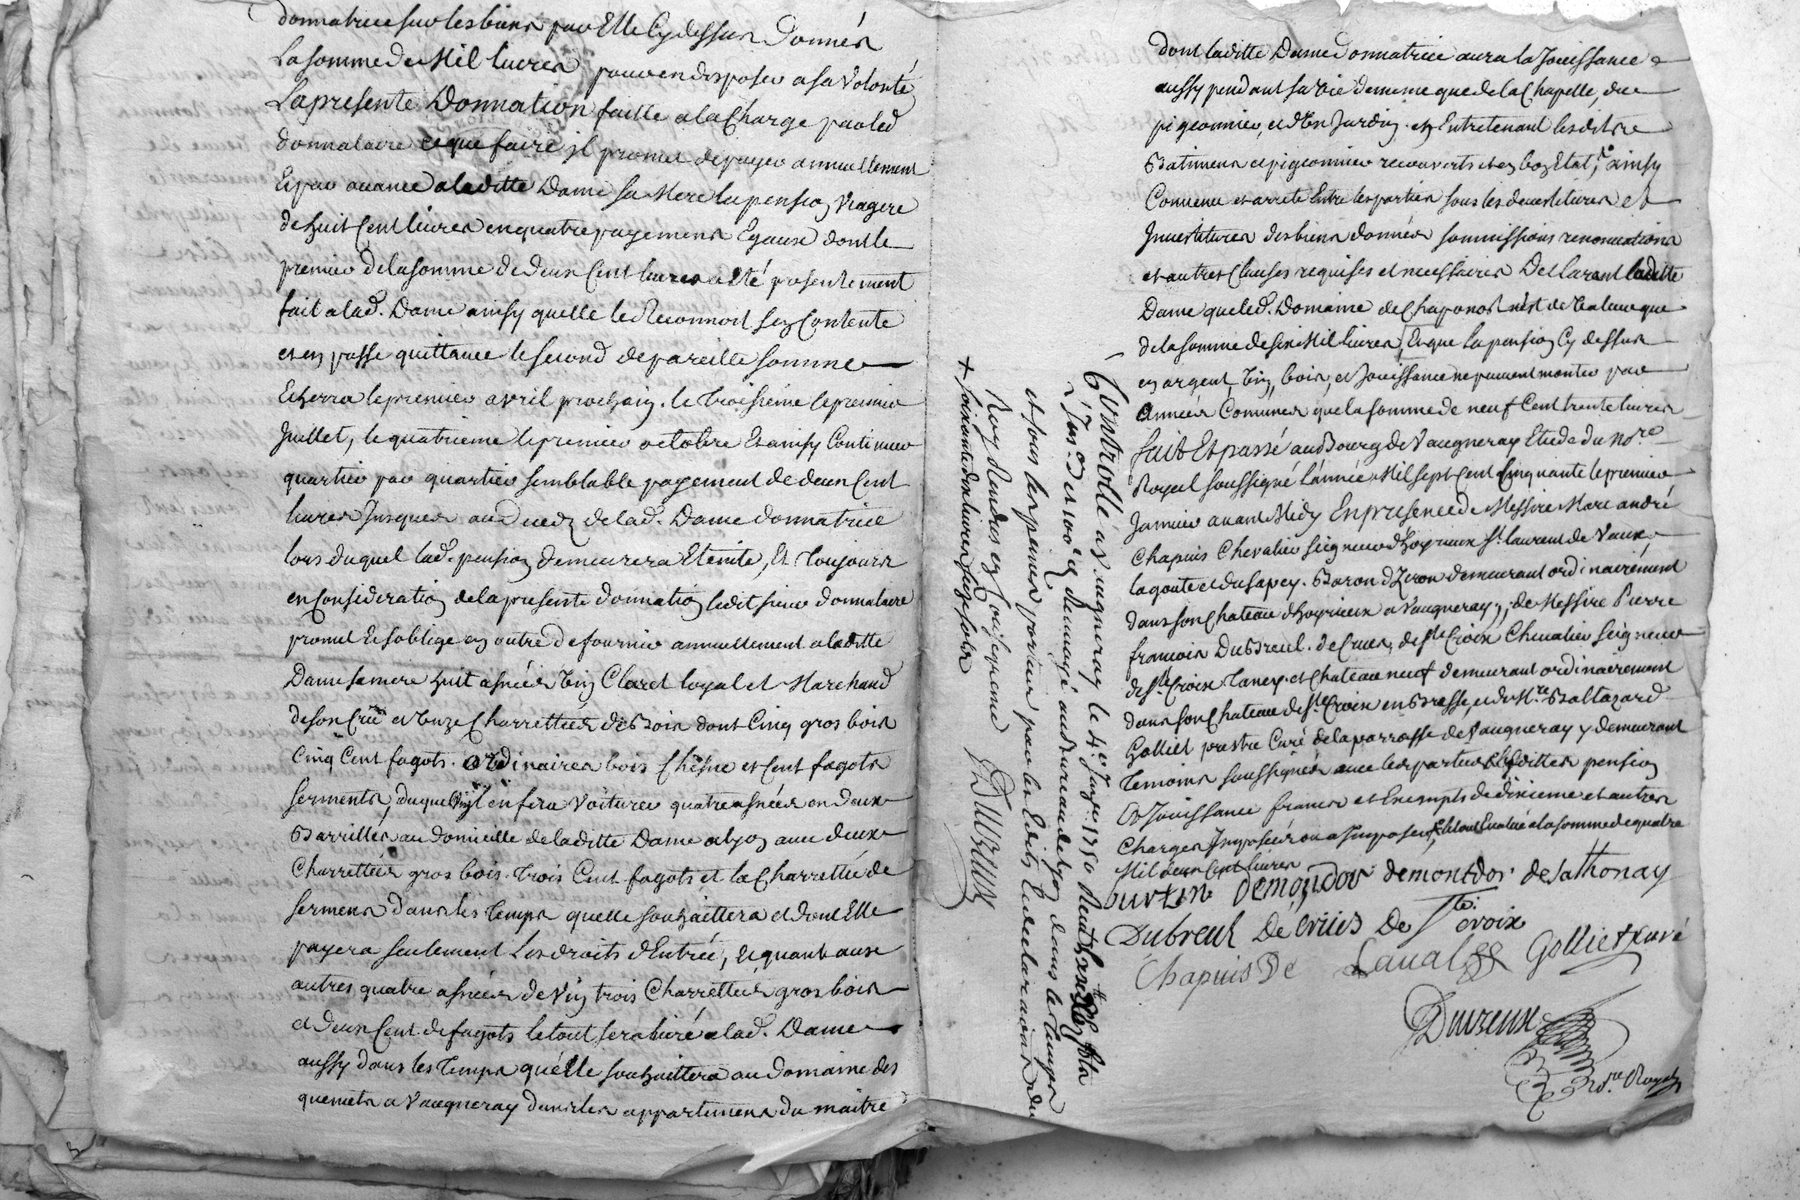 donnatrice sur les biens par Elle Cy dessus donnés
La somme de Mil livres pour en disposer a sa volonté
La presente Donnation faitte a la Charge par led
donnataire ce que faire il promet de payer annuellement
Et par avance a laditte Dame sa Mere la pension viagere
de huit Cent livres en quatre payemens Egaux dont le
premier de la somme de deux Cent livres a eté presentement
fait a lad. Dame ainsy quelle le Reconnoit sen Contente
et en passe quittance le second de pareille somme
Echerra le premier avril prochain. le troisiéme le premier
Juillet, le quatrieme le premier octobre Et ainsy Continuer
quartier par quartier semblable payement de deux Cent
livres Jusques au deced de lad. Dame donnatrice
lors duquel lad. pension demeurera Eteinte, Et toujours
en Consideration de la presente donnation ledit sieur donnataire
promet Et soblige en outre de fournir annuellement a laditte
Dame sa mere huit asnées vin Claret loyal et Marchand
de son Crû et onze Charrettées de Bois dont Cinq gros bois
Cinq Cent fagots. ordinaires bois Chesne et Cent fagots
serments, duquel vin il en fera voiturer quatre asnées en deux
Barrilles au domicille de laditte Dame a lyon avec deux
Charrettées gros bois. trois Cent fagots et la Charrettée de
sermens dans les Temps quelle souhaittera et dont Elle
payera seulement les droits dEntrée, Et quant aux
autres quatre asnées de vin trois Charrettées gros bois
et deux Cent de fagots le tout sera livré a lad. Dame
aussy dans les Temps quélle souhaittera au domaine des
a Vaugneray dans les appartemens du maitre
+ soixante dix livres
Roy rendus en Conséquence Duvreux
et sous les peines portées par les Edits et declarations du
dud. au bureau de lyon dans le temps
Controllé a Vaugneray le 4e Janv. 1750 Reçu
dont laditte Dame donnatrice aura la Jouissance
aussy pendant sa vie de meme que de la Chapelle, du
pigeonnier, et d'un Jardin. en Entretenant lesdits
Batimens et pigeonnier recouverts et en bon Etat, ainsy
Convenu et arreté Entre les parties sous les devestitures et
Investitures des biens donnés soumissions renonciations
et autres Clauses requises et necessaires Declarant laditte
Dame que led. Domaine de Chaponost n'est de valeur que
de la somme de six Mil livres, Et que la pension Cy dessus
en argent, vin, bois, et Jouissance ne peuvent monter par
Années Comunes que la somme de neuf Cent trente livres
fait Et passé au Bourg de Vaugneray Etude du Nore
Royal soussigné l'année Mil sept Cent Cinquante le premier
Janvier avant Midy En presence de Messire Marc andré
Chapuis Chevalier seigneur d'hoyrieux St. laurent de Vaux
lagoute et du sapey. Baron d'Izeron demeurant ordinairement
dans son Chateau dhoyrieux a Vaugneray, de Messire Pierre
francois Dubreul. de Crues, de Ste Croix Chevalier seigneur
de Ste Croix Tanex et Chateau neuf demeurant ordinairement
dans son Chateau de Ste Croix en Bresse, et de Mre. Baltazard
Golliet prestre Curé de la parroisse de Vaugneray y demeurant
Temoins soussignés avec les parties lesdittes pension
Et Jouissance francs et Exempts de dixieme et autres
Charges Imposées ou a Imposer, Et le tout Evalué a la somme de quatre
Mil deux Cent livres
demondor demontdor de Sathonay
Dubreul De Crues De Ste. Croix
Chapuis De Laval Golliet Curé
Duvreux
Nore. Royal